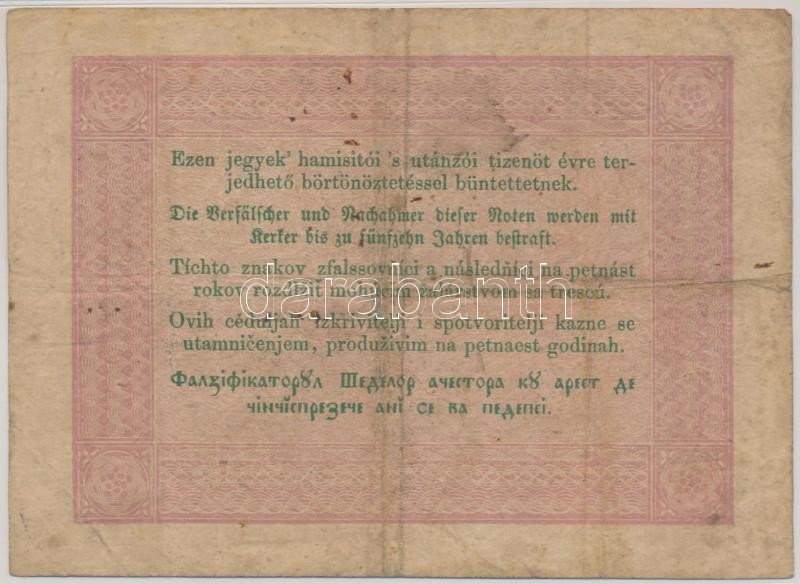 Ezen jegyek' hamisitói 's utánzói tizenöt évre ter-
jedhető börtönöztetéssel büntettetnek.
Die Verfälscher und Nachahmer dieser Noten werden mit
Kerker bis zu fünfzehn Jahren bestraft.
Tíchto znakov a na petnást
rokov žalárstvom sa trescú.
Ovih izkrivitelji i spotvoritelji kazne se
utamničenjem, produživim na petnaest godinah.
Фалꙁіфікаторꙋл Шеделор ачестора кꙋ арест де
чінчіспреꙁече ані се ва педепсі.
darabanth